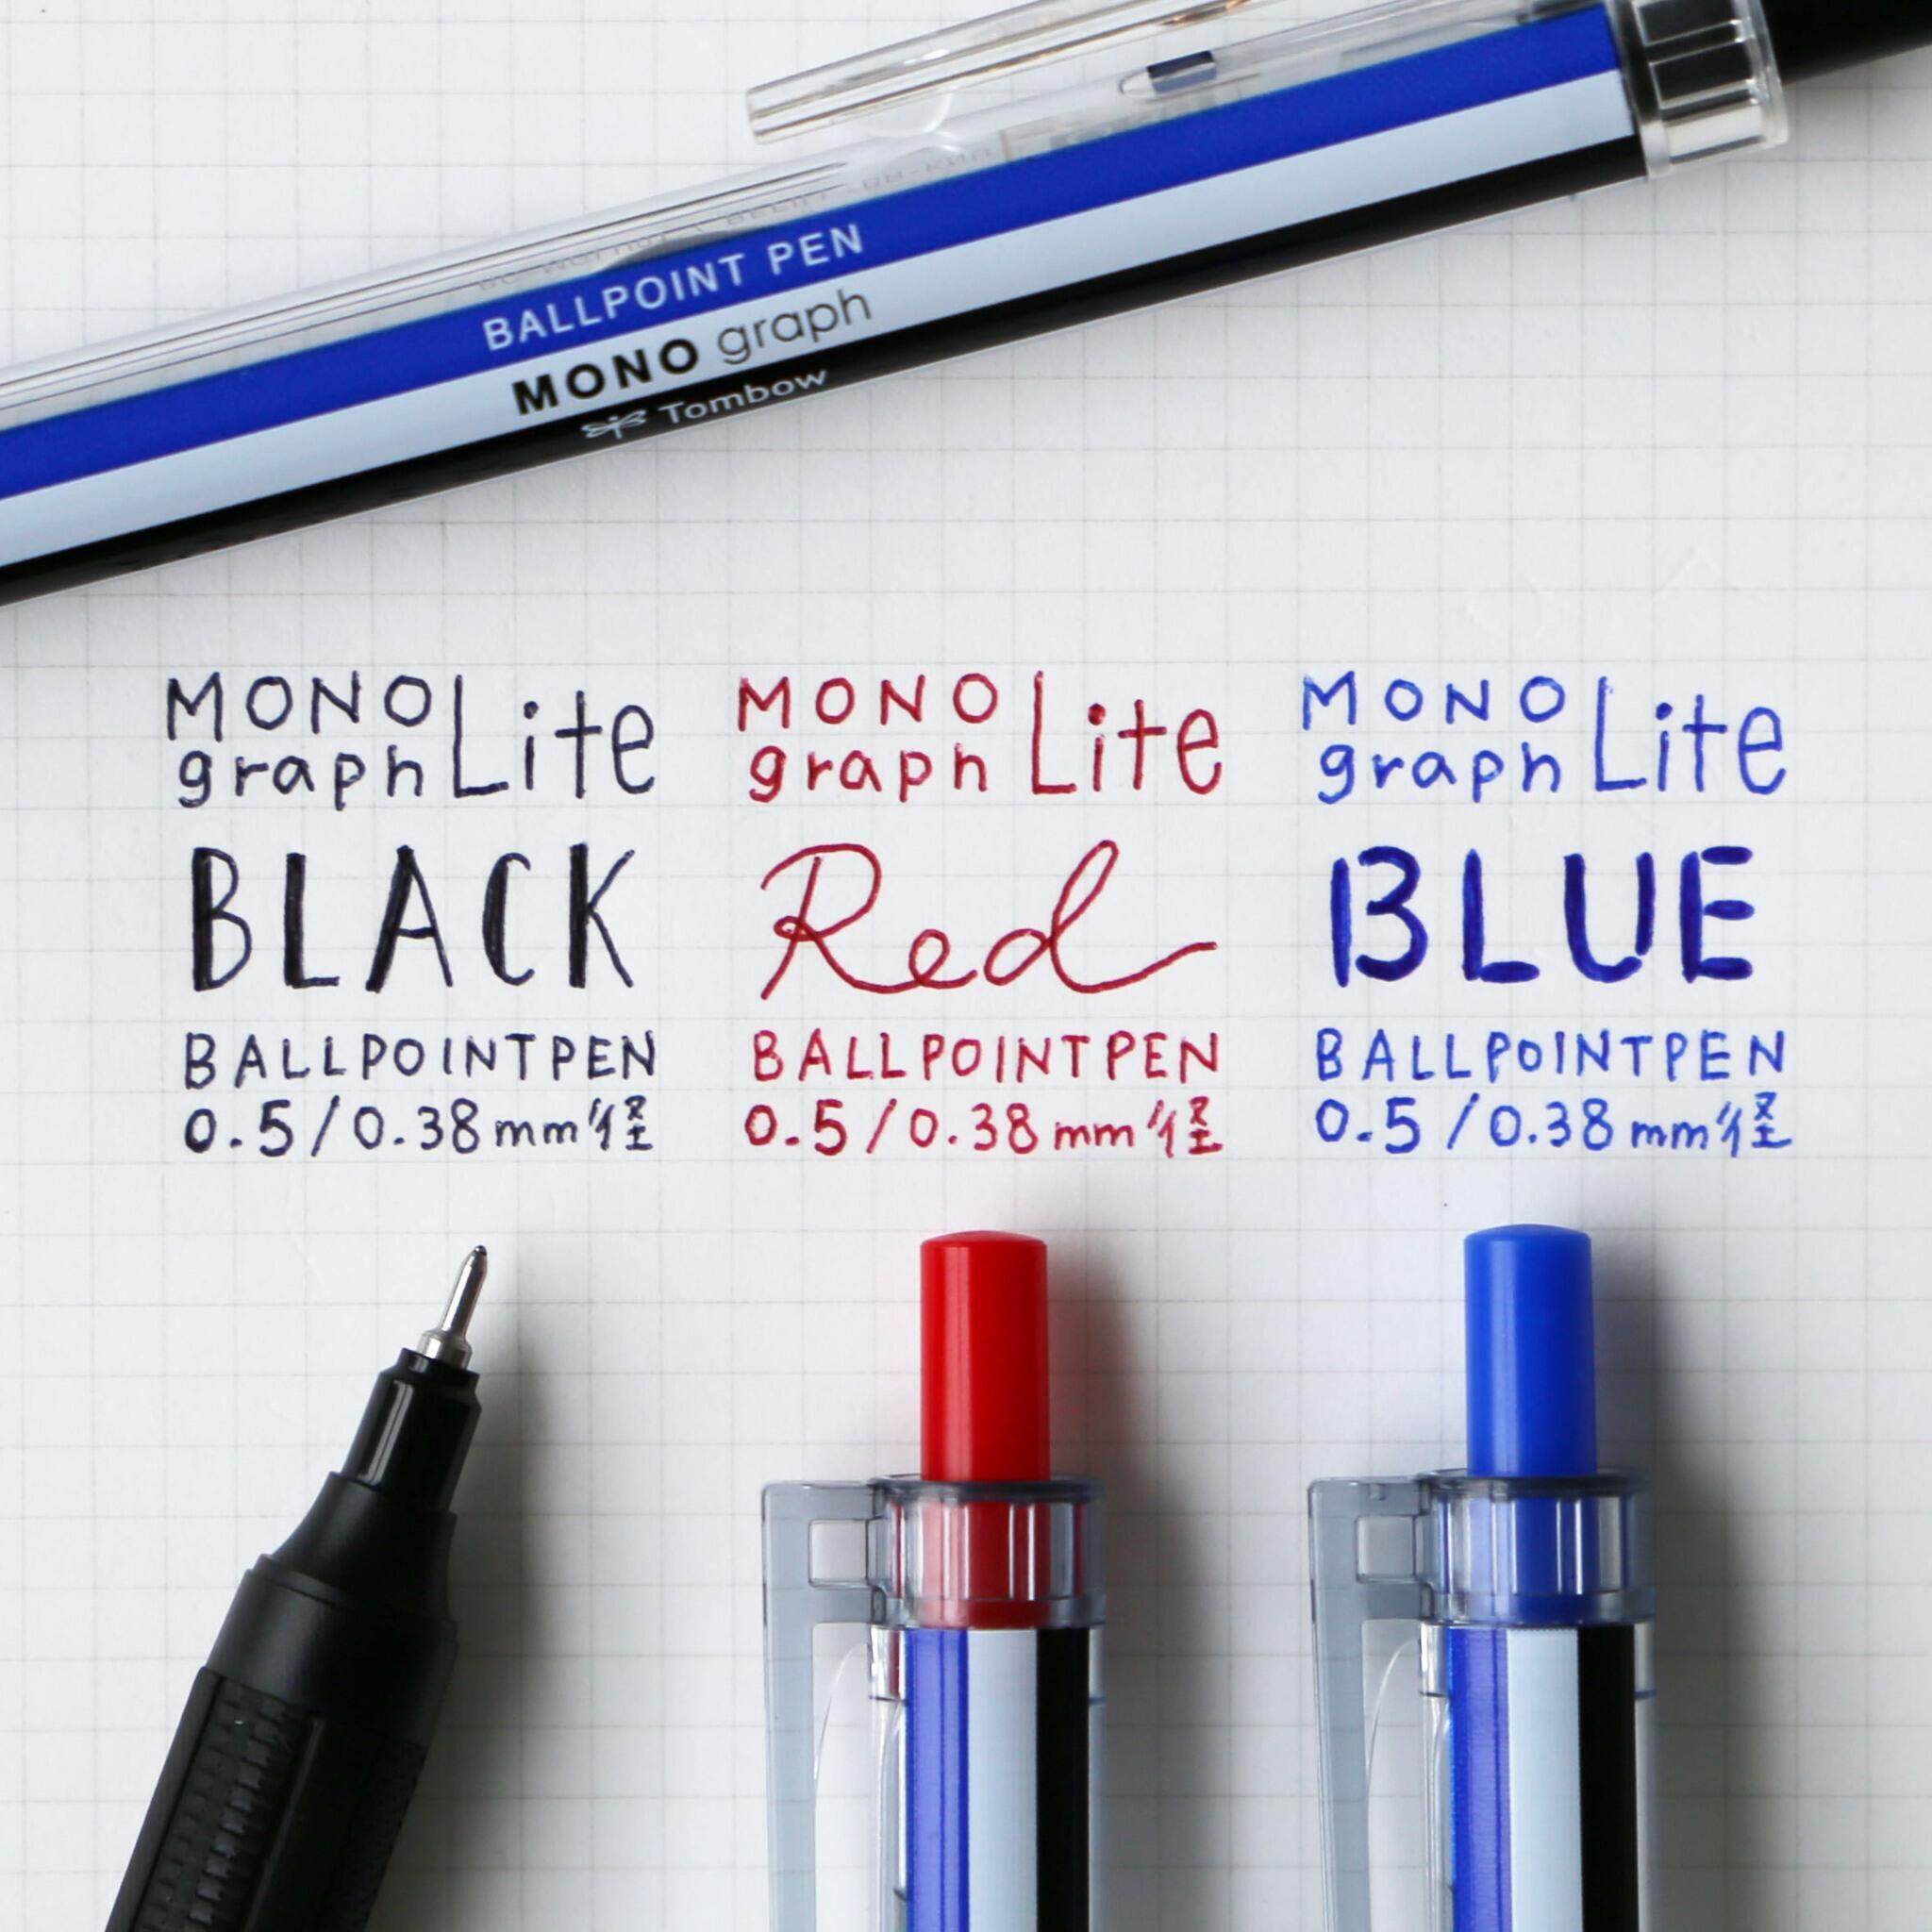 BALLPOINT PEN
MONO graph
Tombow
MONO graph Lite
BLACK
BALLPOINTPEN
0.5/0.38mm径
MONO graph Lite
Red
BALLPOINTPEN
0.5/0.38mm径
MONO graph Lite
BLUE
BALLPOINTPEN
0.5/0.38mm径